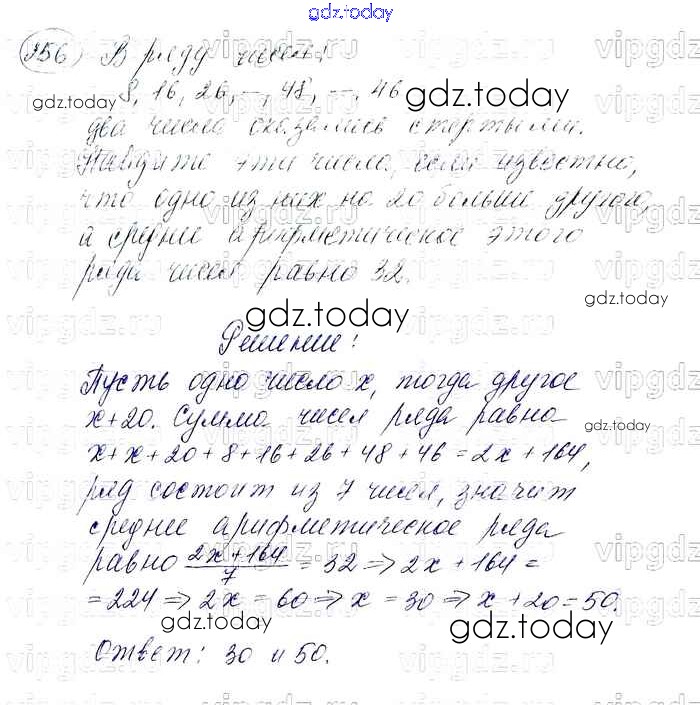 gdz.today
256) В ряду чисел:
8, 16, 26, –, 48, –, 46
gdz.today gdz.today
два числа оказались стертыми.
Найдите эти числа, если известно,
что одно из них на 20 больше другого,
а среднее арифметическое этого
ряда чисел равно 32.
gdz.today
gdz.today
Решение:
Пусть одно число x, тогда другое
x+20. Сумма чисел ряда равна
gdz.today
x+x+20+8+16+26+48+46=2x+164,
ряд состоит из 7 чисел, значит
среднее арифметическое ряда
равно (2x+164)/7 = 32 ⇒ 2x+164 =
= 224 ⇒ 2x = 60 ⇒ x = 30 ⇒ x+20 = 50.
gdz.today gdz.today
Ответ: 30 и 50.